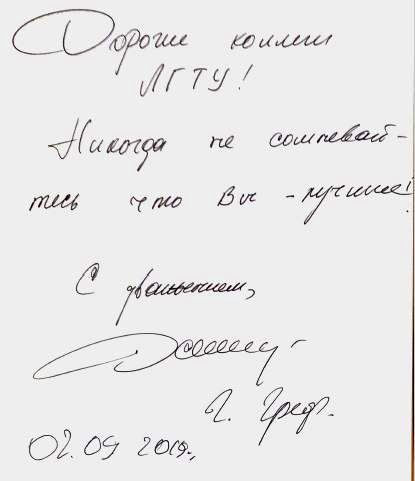 Дорогие коллеги
ЛГТУ!
Никогда не сомневай-
тесь что Вы - лучшие!
С уважением,
Г. Греф.
02.09 2019г.,